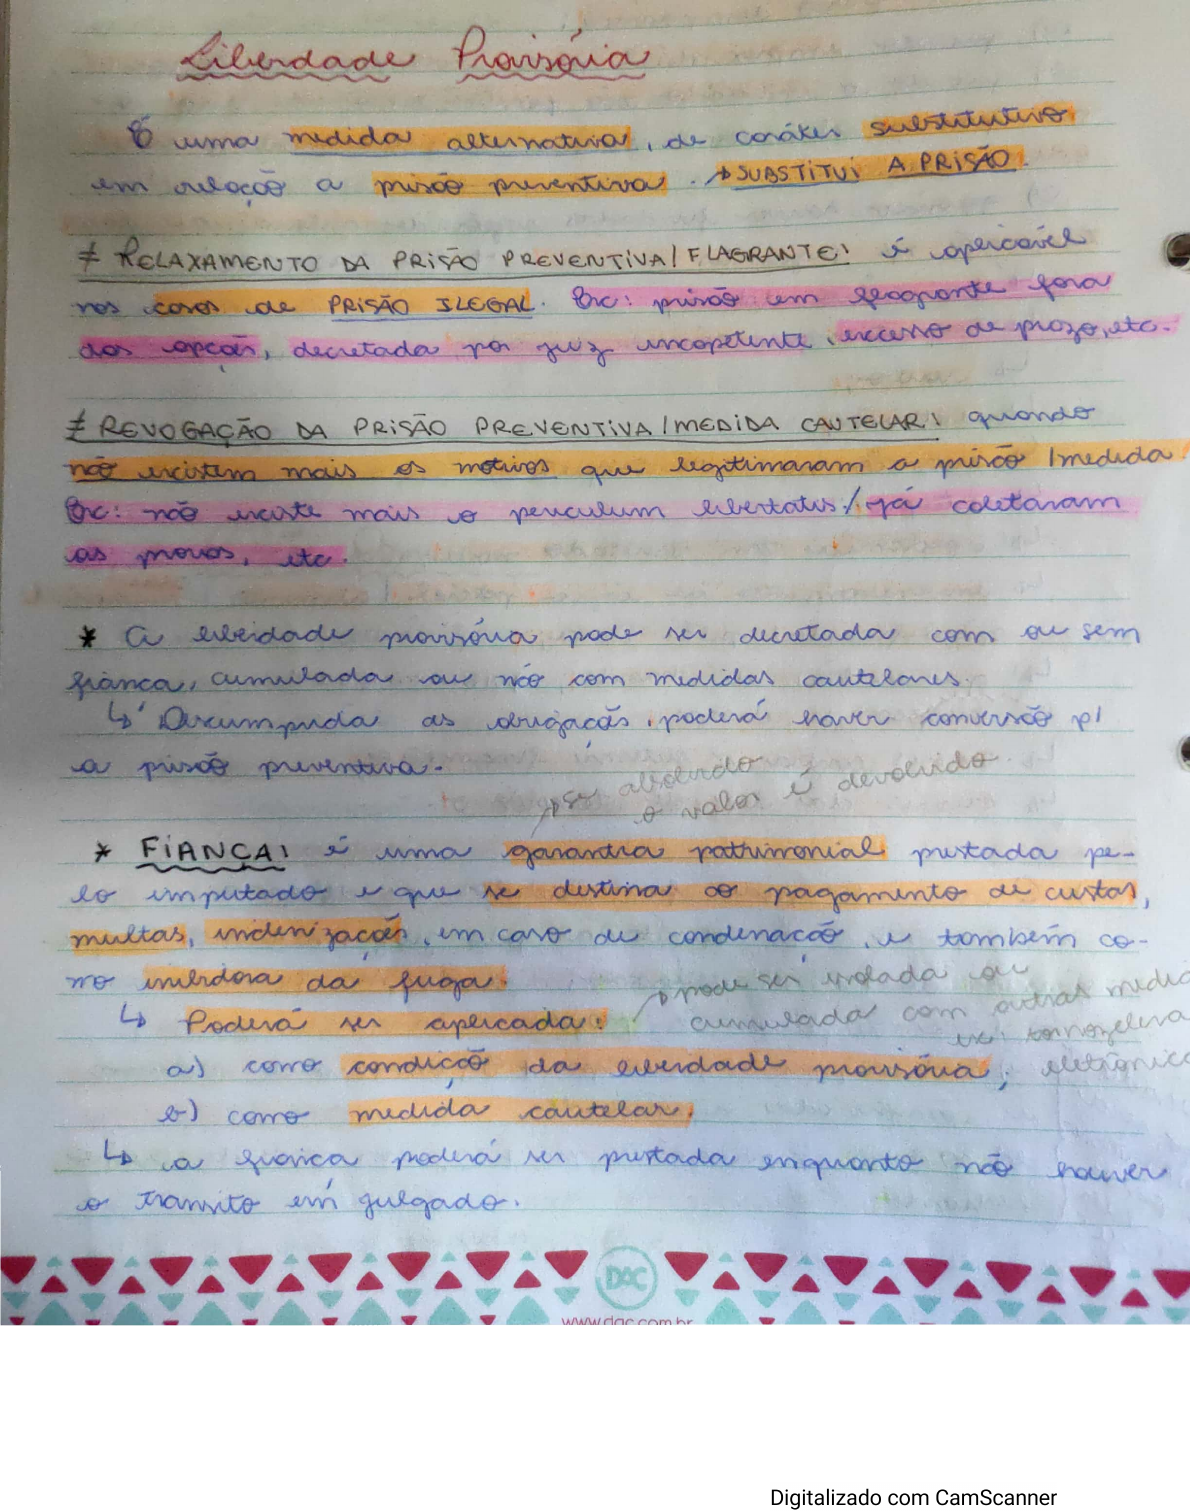 Liberdade Provisória
É uma medida alternativa, de caráter substitutivo
em relação a prisão preventiva. → SUBSTITUI A PRISÃO.
≠ RELAXAMENTO DA PRISÃO PREVENTIVA/FLAGRANTE: é aplicável
nos casos de PRISÃO ILEGAL. Ex: prisão em flagrante fora
das opções, decretada por juiz incopetente, excesso de prazo, etc.
≠ REVOGAÇÃO DA PRISÃO PREVENTIVA/MEDIDA CAUTELAR: quando
não existem mais os motivos que legitimaram a prisão/medida
Ex: não existe mais o periculum libertatis / já coletaram
as provas, etc.
* A liberdade provisória pode ser decretada com ou sem
fiança, cumulada ou não com medidas cautelares.
↳ Descumprida as obrigações, poderá haver conversão p/
a prisão preventiva.
→ se absolvido
o valor é devolvido.
* FIANÇA: é uma garantia patrimonial prestada pe-
lo imputado e que se destina ao pagamento de custas,
multas, indenizações, em caso de condenação, e também co-
mo inibidora da fuga.
→ pode ser isolada ou
↳ Poderá ser aplicada:
cumulada com outras medid
ex: tornozeleira
a) como condição da liberdade provisória;
eletrônica
b) como medida cautelar;
↳ a fiança poderá ser prestada enquanto não houver
o transito em julgado.
DAC
www.dac.com.br
Digitalizado com CamScanner